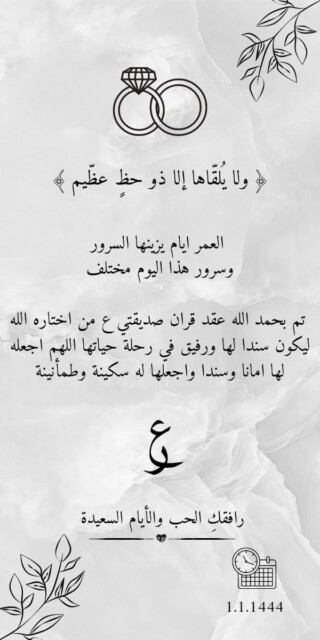 ﴿ ولا يُلقّاها إلا ذو حظٍ عظّيم ﴾
العمر ايام يزينها السرور
وسرور هذا اليوم مختلف
تم بحمد الله عقد قران صديقتي ع من اختاره الله
ليكون سندا لها ورفيق في رحلة حياتها اللهم اجعله
لها امانا وسندا واجعلها له سكينة وطمأنينة
ع
ر
رافقكِ الحب والأيام السعيدة
1.1.1444